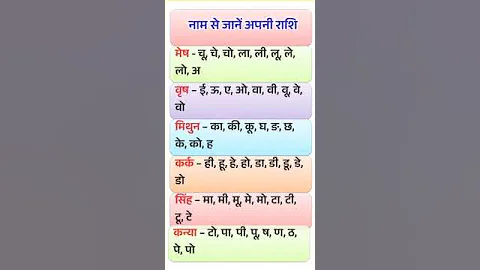 नाम से जानें अपनी राशि
मेष - चू, चे, चो, ला, ली, लू, ले,
लो, अ
वृष – ई, ऊ, ए, ओ, वा, वी, वू, वे,
वो
मिथुन – का, की, कू, घ, ङ, छ,
के, को, ह
कर्क – ही, हू, हे, हो, डा, डी, डू, डे,
डो
सिंह – मा, मी, मू, मे, मो, टा, टी,
टू, टे
कन्या – टो, पा, पी, पू, ष, ण, ठ,
पे, पो